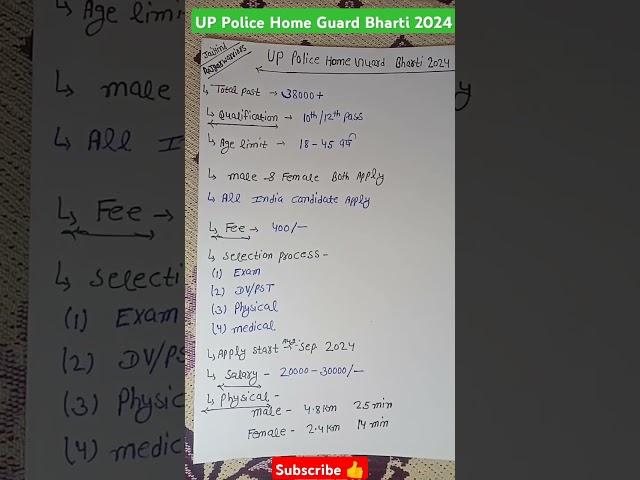 UP Police Home Guard Bharti 2024
UP Police Home Guard Bharti 2024
↳ Total Post → 38000+
↳ Qualification → 10th/12th Pass
↳ Age limit → 18-45 वर्ष
↳ male & Female Both Apply
↳ All India Candidate Apply
↳ Fee → 400/-
↳ Selection process -
(1) Exam
(2) DV/PST
(3) Physical
(4) medical
↳ Apply start → Aug.-Sep. 2024
↳ Salary - 20000-30000/-
↳ Physical -
male - 4.8 Km 25 min
Female - 2.4 Km 14 min
Subscribe 👍
Age limi
male
All
Fee →
Selecti
(1) Exam
(2) DV/PS
(3) Physic
(4) medic